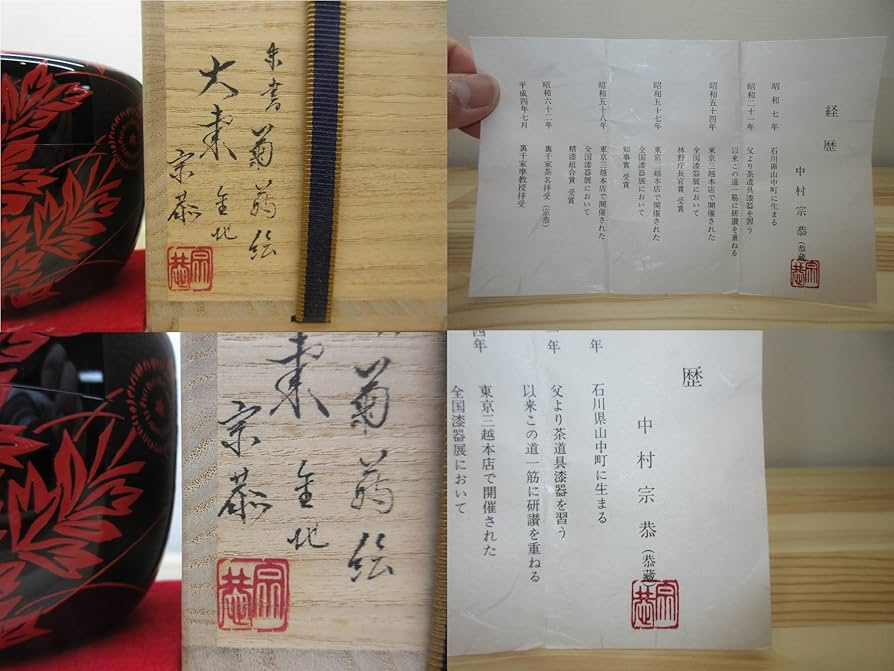 朱書 菊蒔絵
大棗 金地
宗恭
宗恭
経歴
中村宗恭(恭藏)
宗恭
昭和七年 石川県山中町に生まる
昭和二十一年 父より茶道具漆器を習う
以来この道一筋に研讃を重ねる
昭和五十四年 東京三越本店で開催された
全国漆器展において
林野庁長官賞 受賞
昭和五十七年 東京三越本店で開催された
全国漆器展において
知事賞 受賞
昭和五十八年 東京三越本店で開催された
全国漆器展において
精漆組合賞 受賞
昭和六十二年 裏千家茶名拝受(宗恭)
平成四年七月 裏千家準教授拝受
菊蒔絵
棗 金地
宗恭
宗恭
歴
中村宗恭(恭藏)
宗恭
年 石川県山中町に生まる
一年 父より茶道具漆器を習う
以来この道一筋に研讃を重ねる
四年 東京三越本店で開催された
全国漆器展において